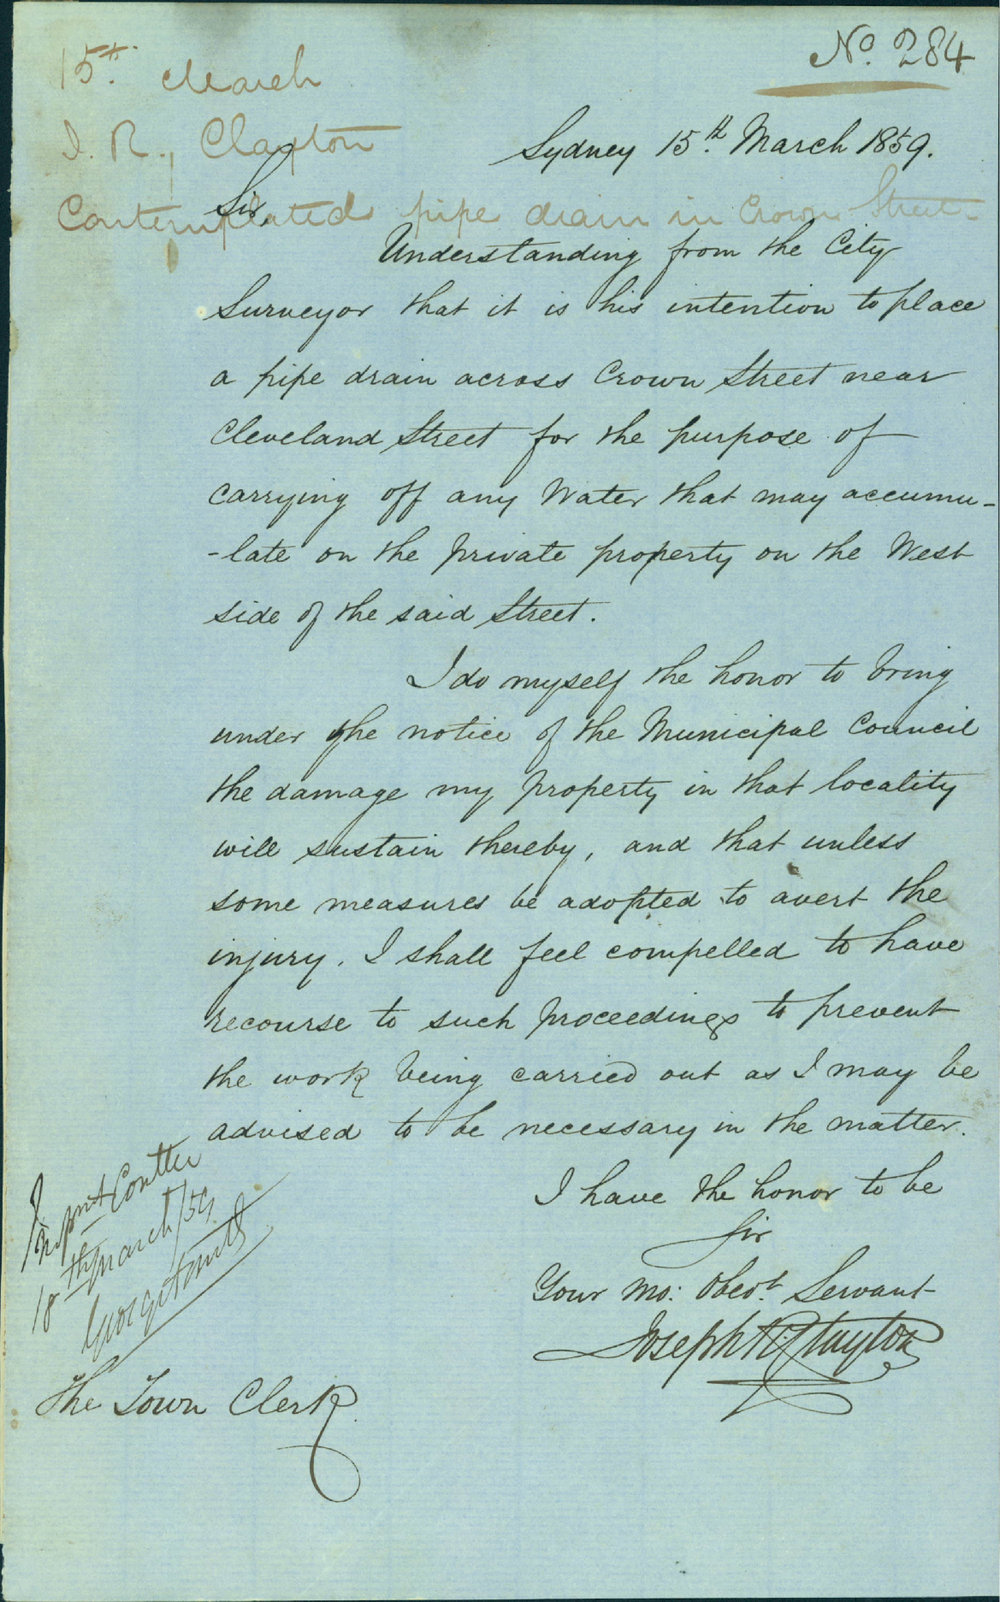 No. 284
15th. March
J. R. Clayton
Contemplated pipe drain in Crown Street.
Sydney 15th. March 1859.
Sir,
Understanding from the City
Surveyor that it is his intention to place
a pipe drain across Crown Street near
Cleveland Street for the purpose of
carrying off any Water that may accumu-
-late on the private property on the West
side of the said Street.
I do myself the honor to bring
under the notice of the Municipal Council
the damage my property in that locality
will sustain thereby, and that unless
some measures be adopted to avert the
injury. I shall feel compelled to have
recourse to such proceedings to prevent
the work being carried out as I may be
advised to be necessary in the matter.
I have the honor to be
Sir
Your Mo: Obedt. Servant
Joseph R. Clayton
Impmt Comttee
18th March/59.
George Smith
The Town Clerk.